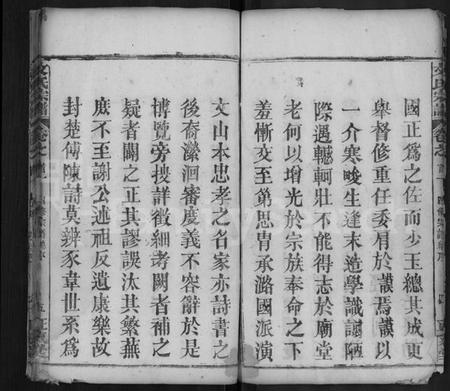 國正為之佐而少玉總其成更
舉督修重任委肩於議焉議以
一介寒畯生逢末造學識謭陋
際遇轗軻壯不能得志於廟堂
老何以增光於宗族奉命之下
羞慚交至第思胄承潞國派演
文山本忠孝之名家亦詩書之
後裔瀠洄審度義不容辭於是
博覽旁搜詳徵細考闕者補之
疑者闕之正其謬誤汰其繁蕪
庶不至謝公述祖反遺康樂故
封楚傅陳詩莫辨豕韋世系為
文氏宗譜
卷之首